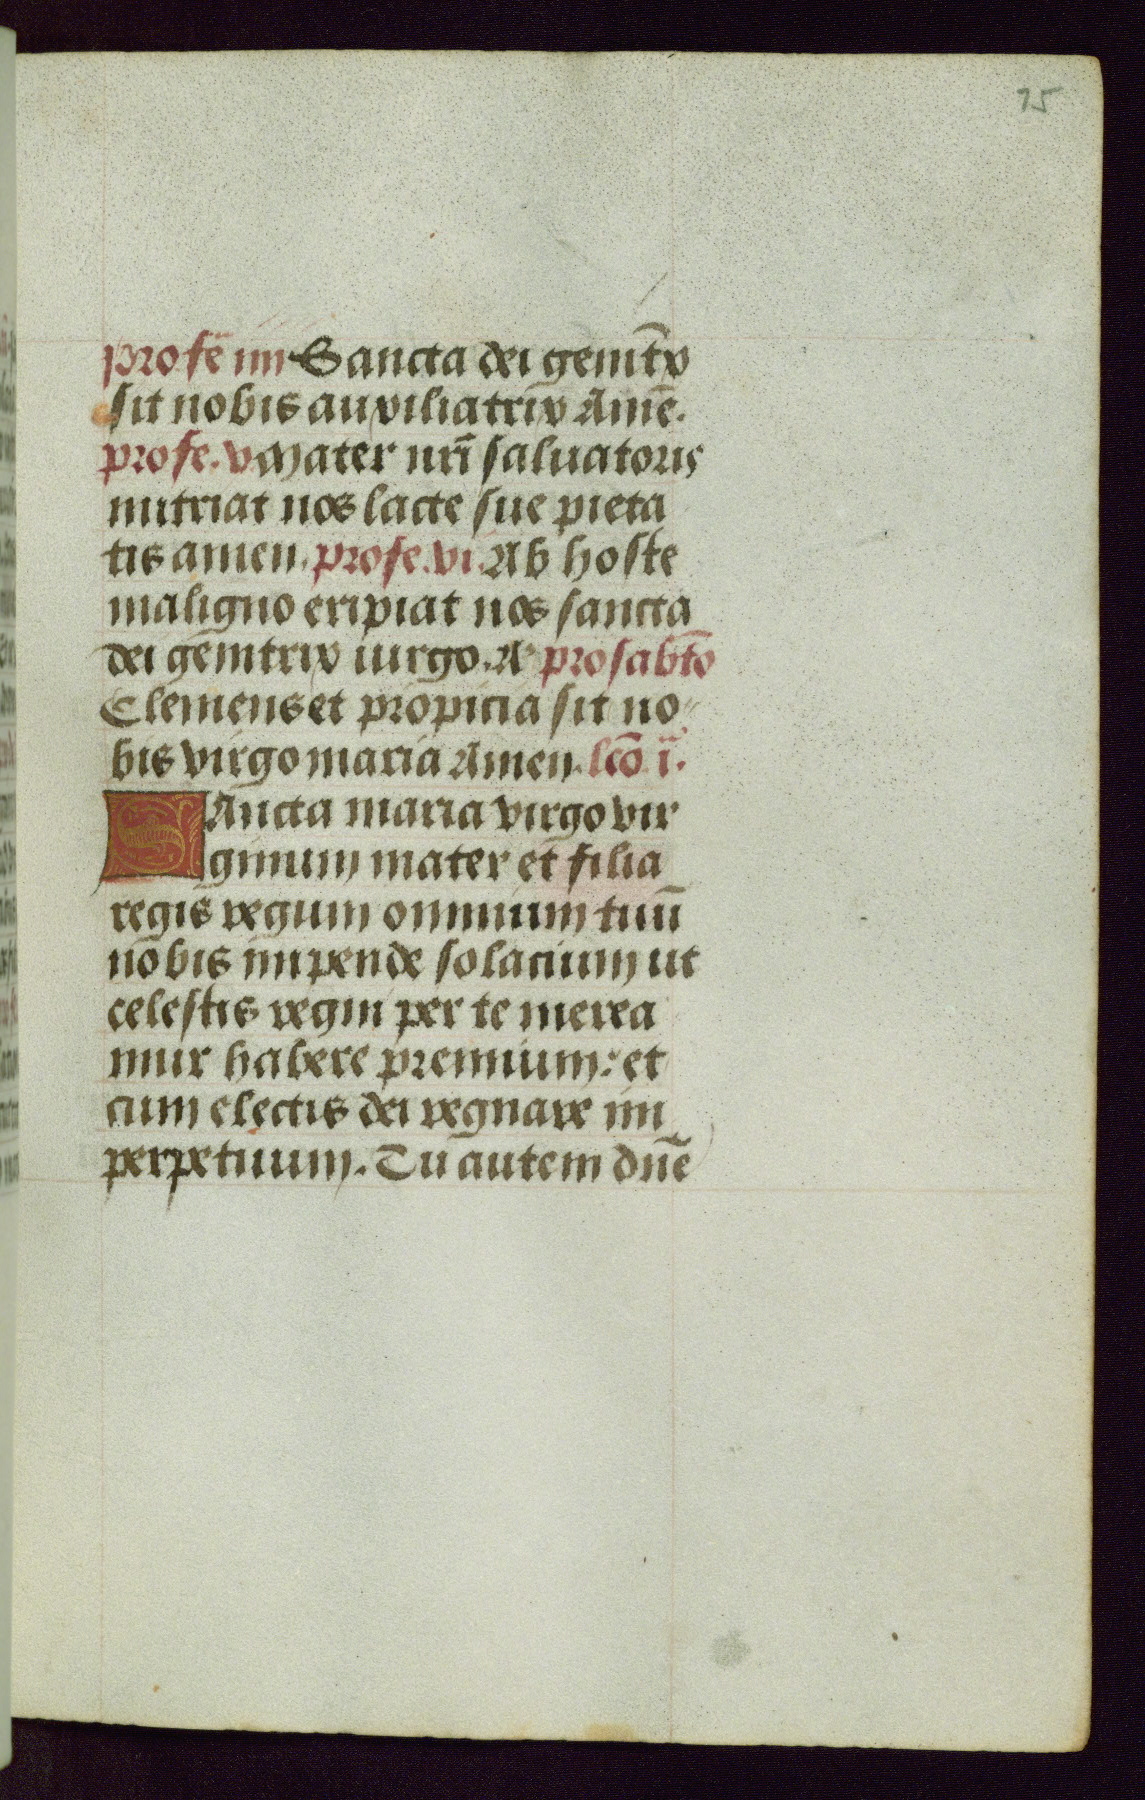 75
pro fē iiii Sancta dei genit̄x
sit nobis auxiliatrix Amē.
pro fe. v Mater nr̄i saluatoris
nutriat nos lacte sue pieta
tis amen. pro fe. vi. Ab hoste
maligno eripiat nos sancta
dei genitrix uirgo. A pro sabt̄o
Clemens et propicia sit no
bis virgo maria Amen. lcō i.
SAncta maria virgo vir
ginum mater et filia
regis regum omnium tuū
nobis impende solacium ut
celestis regni per te merea
mur habere premium: et
cum electis dei regnare in
perpetuum. Tu autem dn̄e